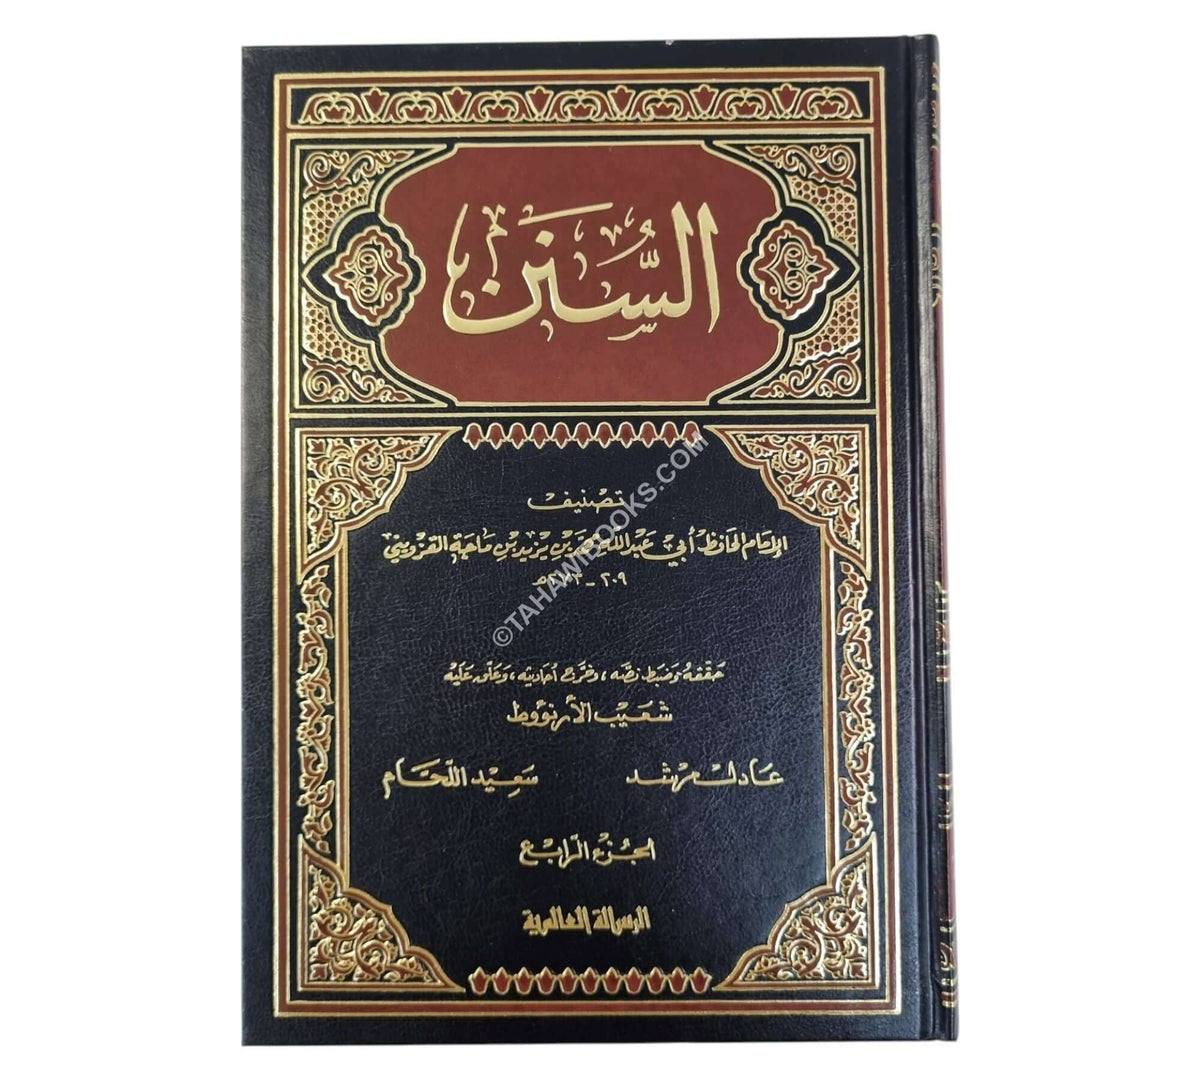 السُّنَن
تصنيف
الإمام الحافظ أبي عبد الله محمد بن يزيد بن ماجة القزويني
٢٠٩ - ٢٧٣ هـ
حَقّقهُ وَضَبط نصَّه، وخرّج أحاديثه، وَعَلّق عَلَيْه
شعَيب الأرنؤوط
عَادل مرشد سَعِيد اللحَّام
الجُزء الرّابع
الرسالة العالمية
©TAHAWIBOOKS.COM